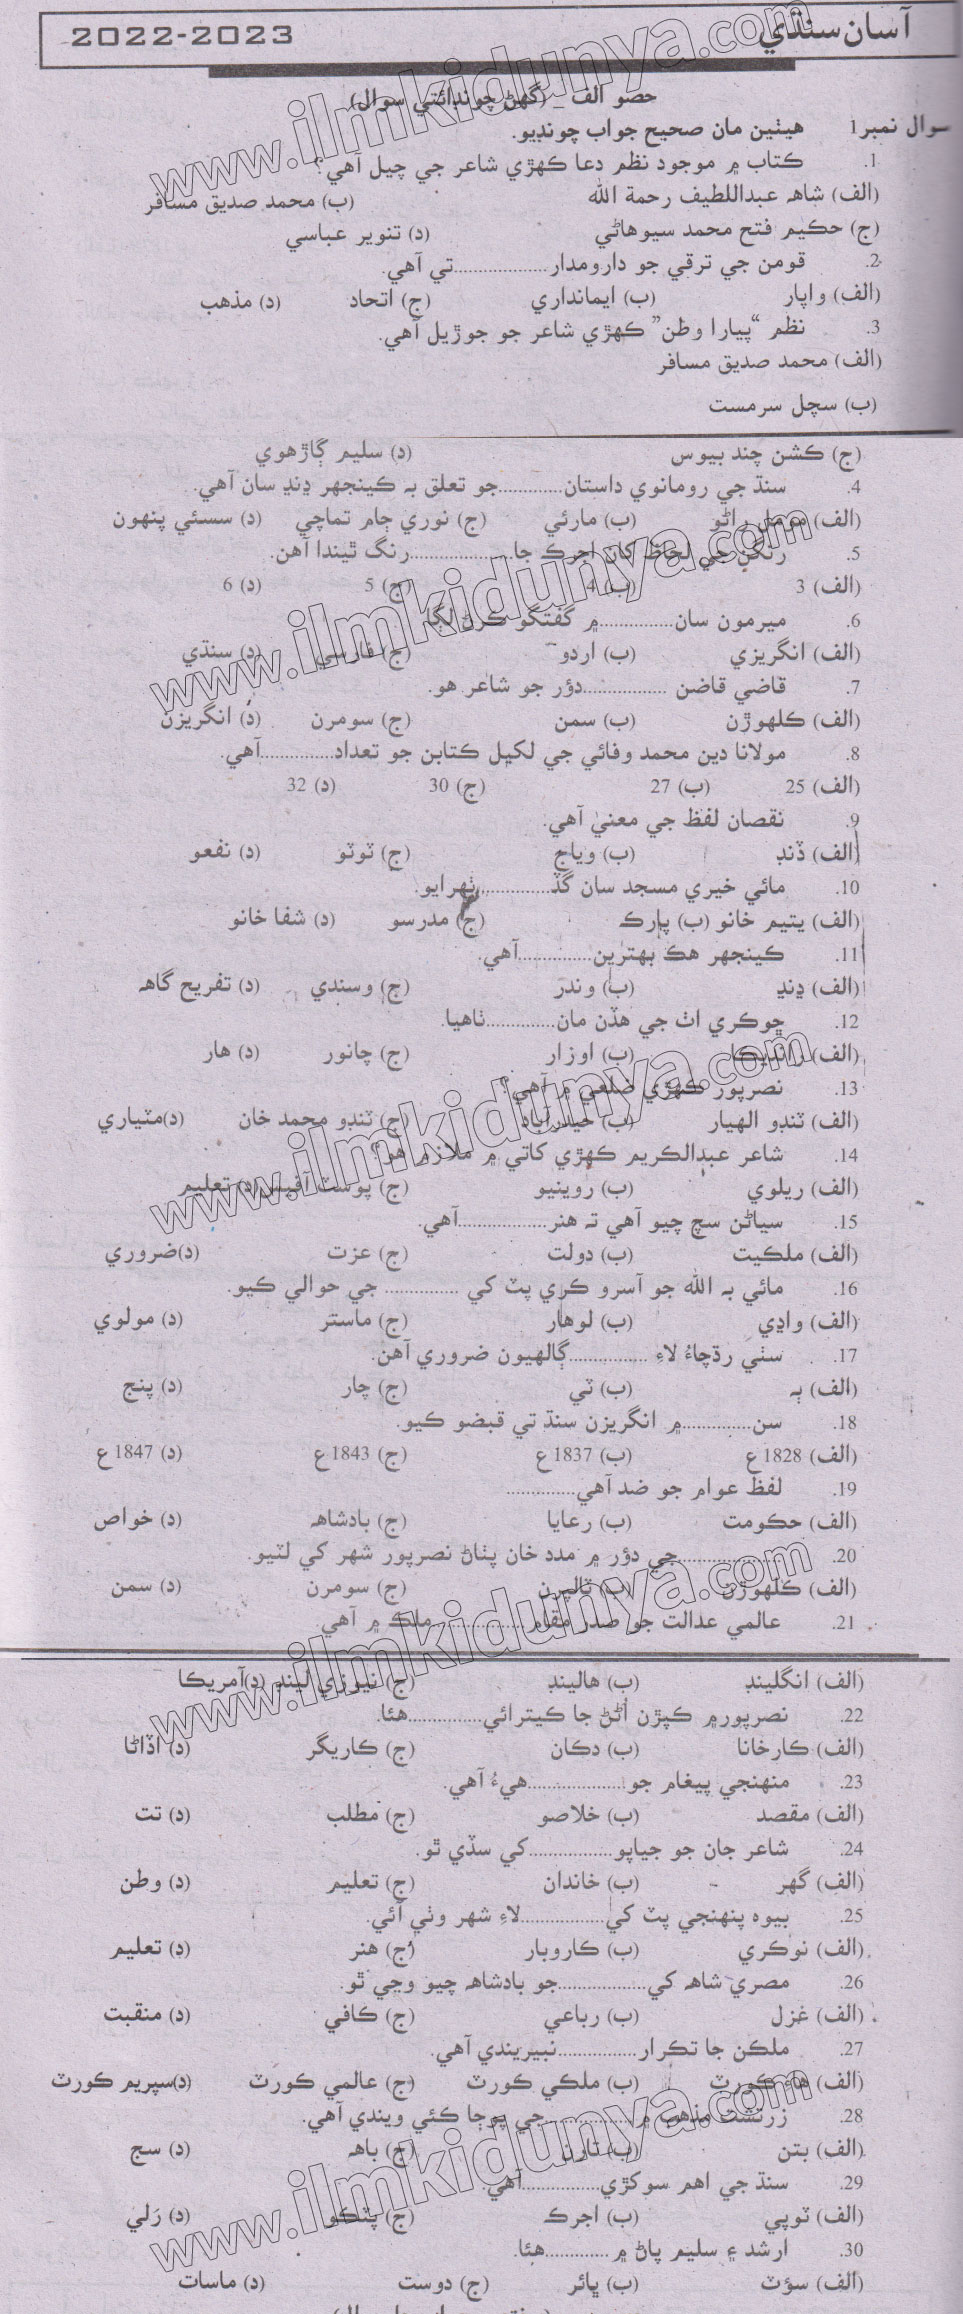 2022-2023 آسان سنڌي
حصو الف _ (گهڻ چونڊائتي سوال)
سوال نمبر1 هيٺين مان صحيح جواب چونڊيو.
1. ڪتاب ۾ موجود نظم دعا ڪهڙي شاعر جي چيل آهي؟
(الف) شاهه عبداللطيف رحمة الله (ب) محمد صديق مسافر
(ج) حڪيم فتح محمد سيوهاڻي (د) تنوير عباسي
2. قومن جي ترقي جو دارومدار..................تي آهي.
(الف) واپار (ب) ايمانداري (ج) اتحاد (د) مذهب
3. نظم “پيارا وطن” ڪهڙي شاعر جو جوڙيل آهي.
(الف) محمد صديق مسافر
(ب) سچل سرمست
(ج) ڪشن چند بيوس (د) سليم ڳاڙهوي
4. سنڌ جي رومانوي داستان............جو تعلق به ڪينجهر ڍنڍ سان آهي.
(الف) مومل راڻو (ب) مارئي (ج) نوري ڄام تماچي (د) سسئي پنهون
5. رنگن جي لحاظ کان اجرڪ جا..................رنگ ٿيندا آهن.
(الف) 3 (ب) 4 (ج) 5 (د) 6
6. ميرمون سان..............۾ گفتگو ڪرڻ لڳا.
(الف) انگريزي (ب) اردو (ج) فارسي (د) سنڌي
7. قاضي قاضن ................دؤر جو شاعر هو.
(الف) ڪلهوڙن (ب) سمن (ج) سومرن (د) انگريزن
8. مولانا دين محمد وفائي جي لکيل ڪتابن جو تعداد..............آهي.
(الف) 25 (ب) 27 (ج) 30 (د) 32
9. نقصان لفظ جي معنيٰ آهي.
(الف) ڏنڊ (ب) وياج (ج) ٽوٽو (د) نفعو
10. مائي خيري مسجد سان گڏ..............ٺهرايو.
(الف) يتيم خانو (ب) پارڪ (ج) مدرسو (د) شفا خانو
11. ڪينجهر هڪ بهترين..............آهي.
(الف) ڍنڍ (ب) وندر (ج) وسندي (د) تفريح گاهه
12. ڇوڪري اٺ جي هڏن مان.............ٺاهيا.
(الف) رانديڪا (ب) اوزار (ج) چانور (د) هار
13. نصرپور ڪهڙي ضلعي ۾ آهي؟
(الف) ٽنڊو الهيار (ب) حيدرآباد (ج) ٽنڊو محمد خان (د)مٽياري
14. شاعر عبدالڪريم ڪهڙي کاتي ۾ ملازم هو؟
(الف) ريلوي (ب) روينيو (ج) پوسٽ آفيس (د) تعليم
15. سياڻن سچ چيو آهي ته هنر.................آهي.
(الف) ملڪيت (ب) دولت (ج) عزت (د)ضروري
16. مائي به الله جو آسرو ڪري پٽ کي .............. جي حوالي ڪيو.
(الف) واڍي (ب) لوهار (ج) ماستر (د) مولوي
17. سٺي رڌچاءُ لاءِ ...............ڳالهيون ضروري آهن.
(الف) ٻه (ب) ٽي (ج) چار (د) پنج
18. سن.............۾ انگريزن سنڌ تي قبضو ڪيو.
(الف) 1828ع (ب) 1837ع (ج) 1843ع (د) 1847ع
19. لفظ عوام جو ضد آهي.............
(الف) حڪومت (ب) رعايا (ج) بادشاهه (د) خواص
20. ..................جي دؤر ۾ مدد خان پٺاڻ نصرپور شهر کي لٽيو.
(الف) ڪلهوڙن (ب) ٽالپرن (ج) سومرن (د) سمن
21. عالمي عدالت جو صدر مقام ................. ملڪ ۾ آهي.
(الف) انگلينڊ (ب) هالينڊ (ج) نيوزي لينڊ (د)آمريڪا
22. نصرپور۾ ڪپڙن اُڻڻ جا ڪيترائي..............هئا.
(الف) ڪارخانا (ب) دڪان (ج) ڪاريگر (د) آڏاڻا
23. منهنجي پيغام جو..................هيءُ آهي.
(الف) مقصد (ب) خلاصو (ج) مطلب (د) تت
24. شاعر جان جو جياپو................کي سڏي ٿو.
(الف) گهر (ب) خاندان (ج) تعليم (د) وطن
25. بيوه پنهنجي پٽ کي................لاءِ شهر وٺي آئي.
(الف) نوڪري (ب) ڪاروبار (ج) هنر (د) تعليم
26. مصري شاهه کي.................جو بادشاهه چيو وڃي ٿو.
(الف) غزل (ب) رباعي (ج) ڪافي (د) منقبت
27. ملڪن جا تڪرار...............نبيريندي آهي.
(الف) هاءِ ڪورٽ (ب) ملڪي ڪورٽ (ج) عالمي ڪورٽ (د)سپريم ڪورٽ
28. زرتشت مذهب ۾...............جي پوڄا ڪئي ويندي آهي.
(الف) بتن (ب) تارن (ج) باهه (د) سج
29. سنڌ جي اهم سوکڙي...............آهي.
(الف) ٽوپي (ب) اجرڪ (ج) پٽڪو (د) رَلي
30. ارشد ۽ سليم پاڻ ۾ ............هئا.
(الف) سؤٽ (ب) ڀائر (ج) دوست (د) ماسات
www.ilmkidunya.com
www.ilmkidunya.com
www.ilmkidunya.com
www.ilmkidunya.com
www.ilmkidunya.com